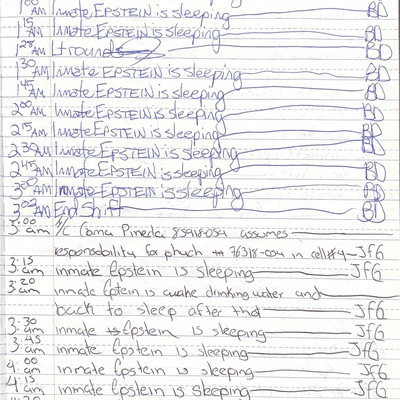 1:00 AM Inmate EPSTEIN is sleeping BD
1:15 AM Inmate EPSTEIN is sleeping BD
1:28 AM Lt rounds BD
1:30 AM Inmate EPSTEIN is sleeping BD
1:45 AM Inmate EPSTEIN is sleeping BD
2:00 AM Inmate EPSTEIN is sleeping BD
2:15 AM Inmate EPSTEIN is sleeping BD
2:30 AM Inmate EPSTEIN is sleeping BD
2:45 AM Inmate EPSTEIN is sleeping BD
3:00 AM Inmate EPSTEIN is sleeping BD
3:02 AM End Shift BD
3:00 am I/C Pineda 85918-054 assumes
responsability for 76318-054 in cell #4 JfG
3:15 am inmate Epstein is sleeping JfG
3:20 am inmate Eptein is awake drinking water and
back to sleep after that JfG
3:30 am inmate Epstein is sleeping JfG
3:45 am inmate Epstein is sleeping JfG
4:00 am inmate Epstein is sleeping JfG
4:15 am inmate Epstein is sleeping JfG